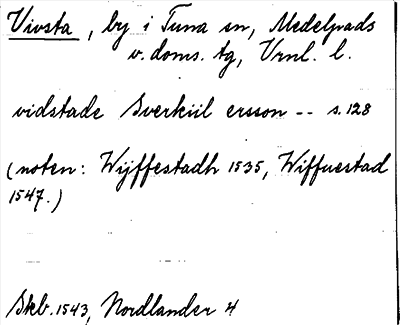 Vivsta, by i Tuna sn, Medelpads
v. doms. tg, Vrnl. l.
vidstade Sverkiil ersson -- s. 128
(noten: Wijffestadh 1535, Wiffuestad
1547.)
Skb. 1543, Nordlander 4